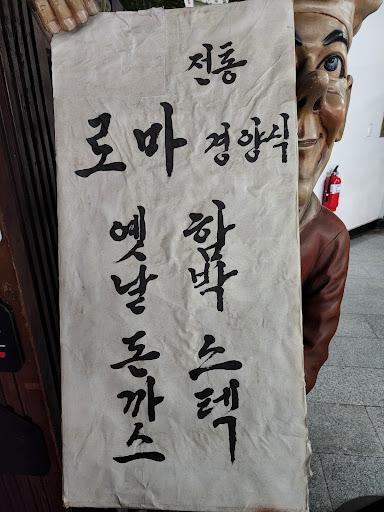 전통
로마 경양식
함박스텍
옛날 돈까스